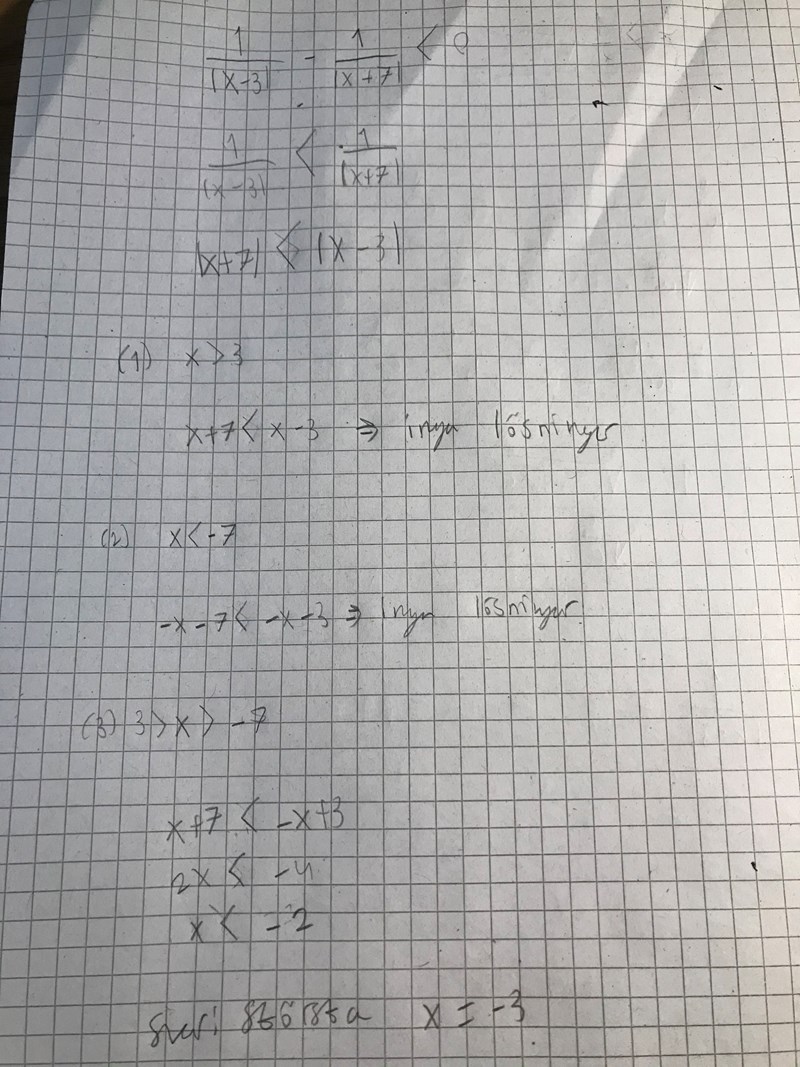 1/|x-3| - 1/|x+7| < 0
1/|x-3| < 1/|x+7|
|x+7| < |x-3|
(1) x>3
x+7 < x-3 ⇒ inga lösningar
(2) x<-7
-x-7 < -x-3 ⇒ inga lösningar
(3) 3>x>-7
x+7 < -x+3
2x < -4
x < -2
Svar: största x = -3